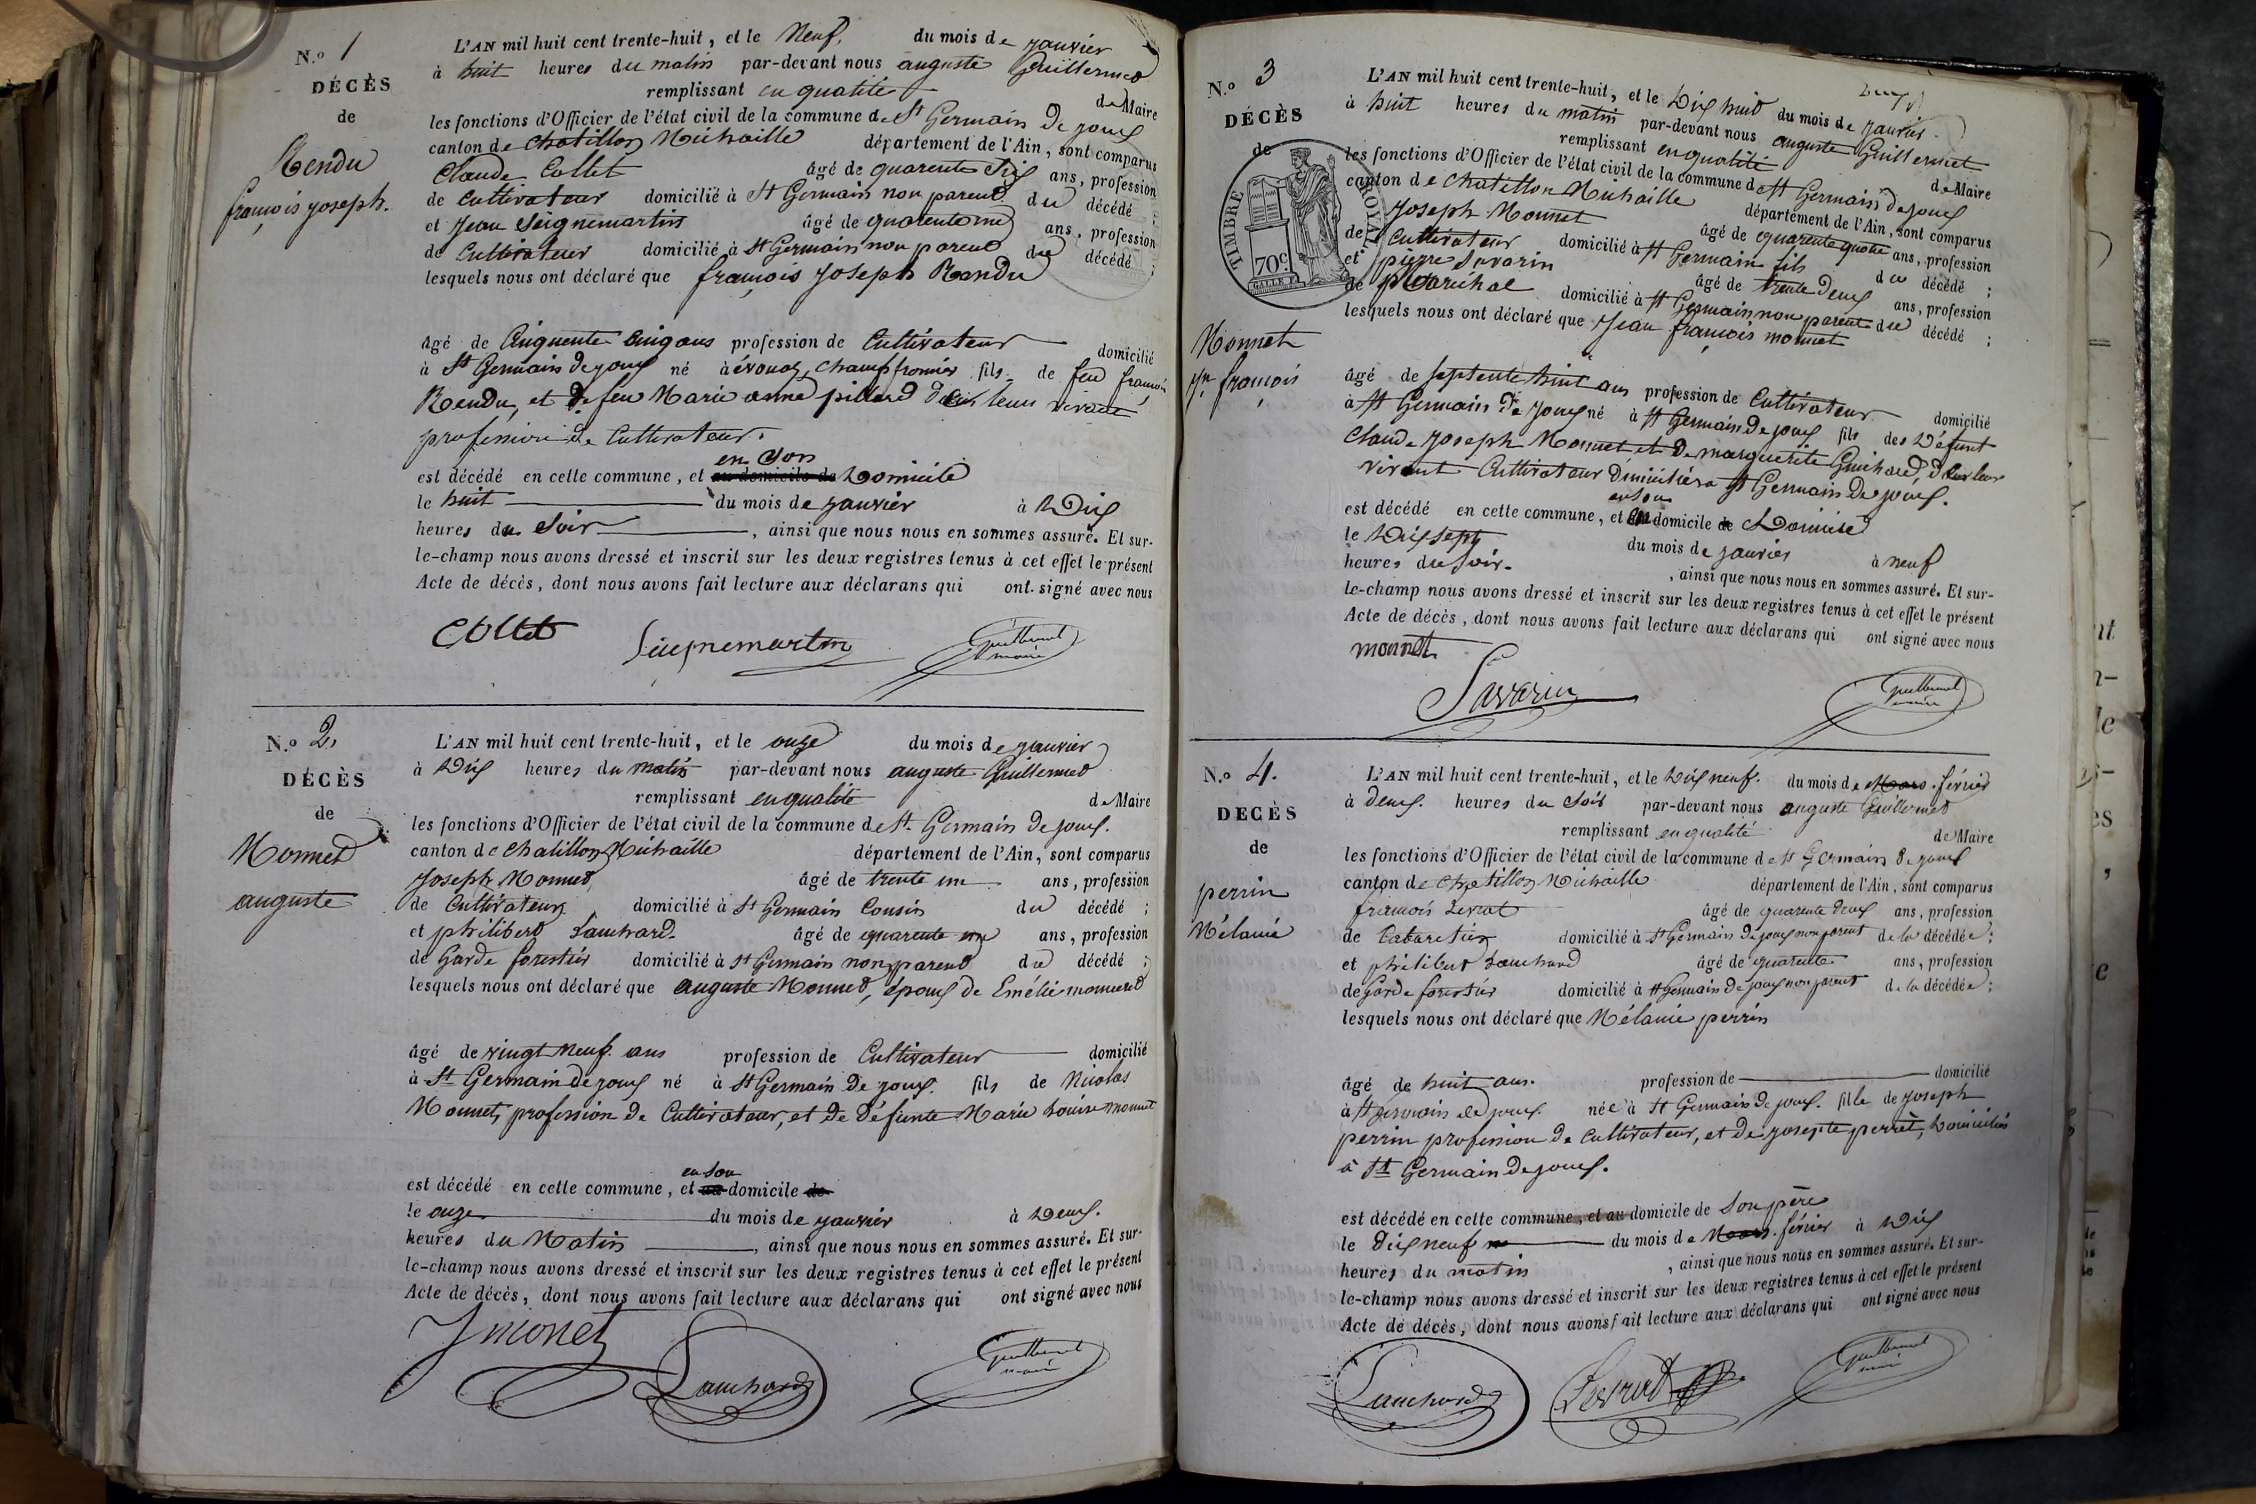 N.o 1
DÉCÈS
de
Rendu
françois joseph.
L'AN mil huit cent trente-huit, et le Neuf. du mois de janvier
à huit heures du matin par-devant nous auguste Guillermet
remplissant en qualité de Maire
les fonctions d'Officier de l'état civil de la commune de St Germain de joux
canton de Chatillon Michaille département de l'Ain, sont comparus
Claude Collet âgé de quarente Six ans, profession
de Cultivateur domicilié à St Germain non parent du décédé ;
et Jean Seignemartin âgé de quarente un ans, profession
de Cultivateur domicilié à St Germain non parent du décédé ;
lesquels nous ont déclaré que françois Joseph Rendu
âgé de Cinquente Cinq ans profession de Cultivateur domicilié
à St Germain de joux né à évouaz, Champfromier fils de feu françois
Rendu, et de feu Marie anne pillard de leur vivant
profession de Cultivateur.
en Son
est décédé en cette commune, et au domicile de Domicile
le huit du mois de janvier à Dix
heures du Soir, ainsi que nous nous en sommes assuré. Et sur-
le-champ nous avons dressé et inscrit sur les deux registres tenus à cet effet le présent
Acte de décès, dont nous avons fait lecture aux déclarans qui ont signé avec nous
Collet Seignemartin Guillermet
maire
N.o 2.
DÉCÈS
de
Monnet
auguste
L'AN mil huit cent trente-huit, et le onze du mois de janvier
à Dix heures du matin par-devant nous auguste Guillermet
remplissant en qualité de Maire
les fonctions d'Officier de l'état civil de la commune de St Germain de joux.
canton de Chatillon Michaille département de l'Ain, sont comparus
Joseph Monnet, âgé de trente un ans, profession
de Cultivateur domicilié à St Germain Cousin du décédé ;
et philibert Lauchard. âgé de quarente un ans, profession
de Garde forestier domicilié à St Germain non parent du décédé ;
lesquels nous ont déclaré que auguste Monnet, époux de Emélie monneret
âgé de vingt Neuf. ans profession de Cultivateur domicilié
à St Germain de joux né à St Germain de joux. fils de Nicolas
Monnet, profession de Cultivateur, et de Défunte Marie Louise monnet
en Son
est décédé en cette commune, et au domicile de
le onze du mois de janvier à Deux.
heures du Matin, ainsi que nous nous en sommes assuré. Et sur-
le-champ nous avons dressé et inscrit sur les deux registres tenus à cet effet le présent
Acte de décès, dont nous avons fait lecture aux déclarans qui ont signé avec nous
J monet Lauchard Guillermet
maire
N.o 3
DÉCÈS
de
TIMBRE ROYAL
70c.
Monnet
Jn. françois
L'AN mil huit cent trente-huit, et le Dix huit du mois de janvier.
à huit heures du matin par-devant nous auguste Guillermet
remplissant en qualité de Maire
les fonctions d'Officier de l'état civil de la commune de St Germain de joux
canton de Chatillon Michaille département de l'Ain, sont comparus
Joseph Monnet âgé de quarente quatre ans, profession
de Cultivateur domicilié à St Germain fils du décédé ;
et pierre Savarin âgé de trente Deux ans, profession
de Maréchal domicilié à St Germain non parent du décédé ;
lesquels nous ont déclaré que Jean françois monnet
âgé de septente huit ans profession de Cultivateur domicilié
à St Germain de joux né à St Germain de joux fils des Défunt
Claude Joseph Monnet et de marguerite Guichard, de leur
vivant Cultivateur Domicilié a St Germain de joux.
en Son
est décédé en cette commune, et au domicile de Domicile
le Dix sept du mois de janvier à neuf
heures du Soir. , ainsi que nous nous en sommes assuré. Et sur-
le-champ nous avons dressé et inscrit sur les deux registres tenus à cet effet le présent
Acte de décès, dont nous avons fait lecture aux déclarans qui ont signé avec nous
monnet
Savarin Guillermet
maire
N.o 4.
DECÈS
de
perrin
Mélanie
L'AN mil huit cent trente-huit, et le Dix neuf. du mois de Mars. février
à deux. heures du Soir par-devant nous auguste Guillermet
remplissant en qualité de Maire
les fonctions d'Officier de l'état civil de la commune de St Germain de joux
canton de Chatillon Michaille département de l'Ain, sont comparus
françois Levrat âgé de quarente deux ans, profession
de Cabaretier domicilié à St Germain de joux non parent de la décédée ;
et philibert Lauchard âgé de quarente ans, profession
de Garde forestier domicilié à St Germain de joux non parent de la décédée ;
lesquels nous ont déclaré que Mélanie perrin
âgé de huit ans. profession de domicilié
à St Germain de joux. née à St Germain de joux. fille de joseph
perrin profession de cultivateur, et de josepte perret, Domiciliés
à St Germain de joux.
est décédé en cette commune, et au domicile de Son père
le Dix neuf du mois de Mars. février à Dix
heures du matin, ainsi que nous nous en sommes assuré. Et sur-
le-champ nous avons dressé et inscrit sur les deux registres tenus à cet effet le présent
Acte de décès, dont nous avons fait lecture aux déclarans qui ont signé avec nous
Lauchard Levrat Guillermet
maire